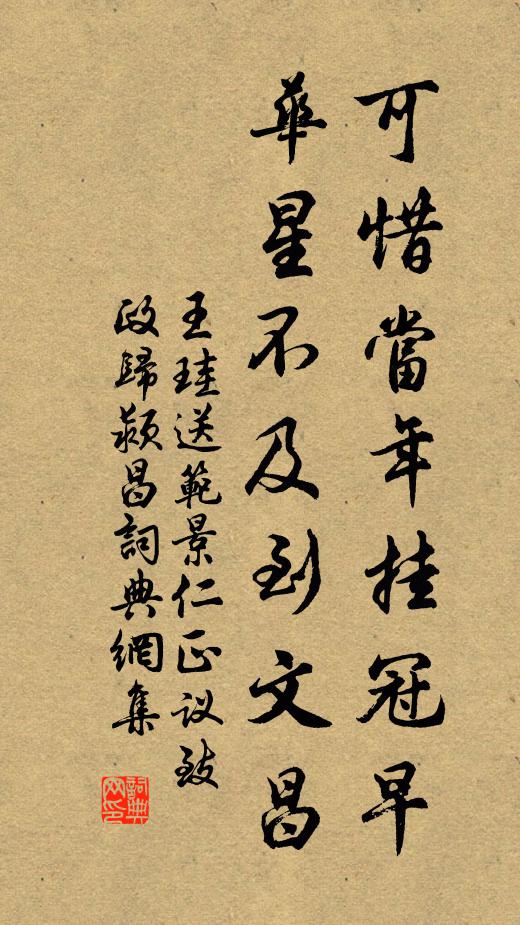 可惜當年挂冠早
華星不及到文昌
王珪送範景仁正议致
政歸颍昌詞典網集
詞典
网印